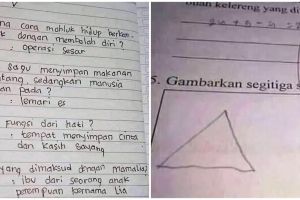 cara mahluk hidup berkem
dengan membelah diri?
: operasi sesar
Sapu menyimpan makanan
sedangkan manusia
pada?
: lemari es
Fungsi dari hati?
: tempat menyimpan Cinta
dan Kasih Sayang
yang dimaksud dengan mamalia
: ibu dari seorang anak
perempuan bernama Lia
kelereng yang di
5. Gambarkan segitiga s